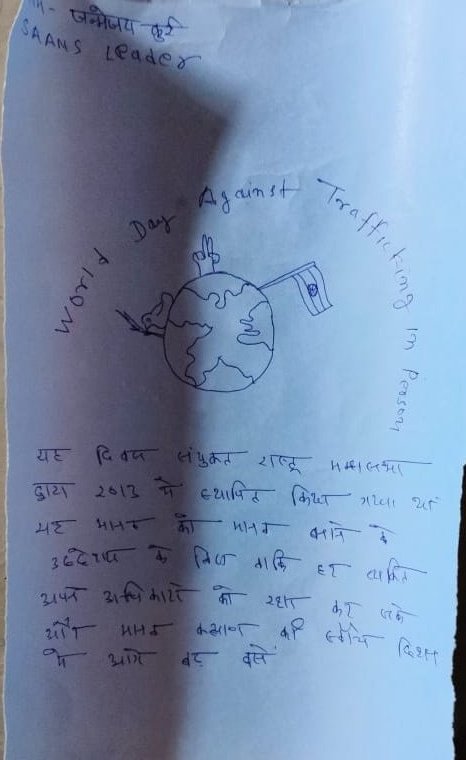 जन्मोजय कुर्रे
SAANS Leader
World Day Against Trafficking In Person
यह दिवस संयुक्त राष्ट्र महासभा
द्वारा 2013 मे स्थापित किया गया था
यह मानव को मानव बनाने के
उद्देश्य के लिए ताकि हर व्यक्ति
अपने अधिकारो की रक्षा कर सके
और मानव कल्याण की दिशा
मे आगे बढ़ सके